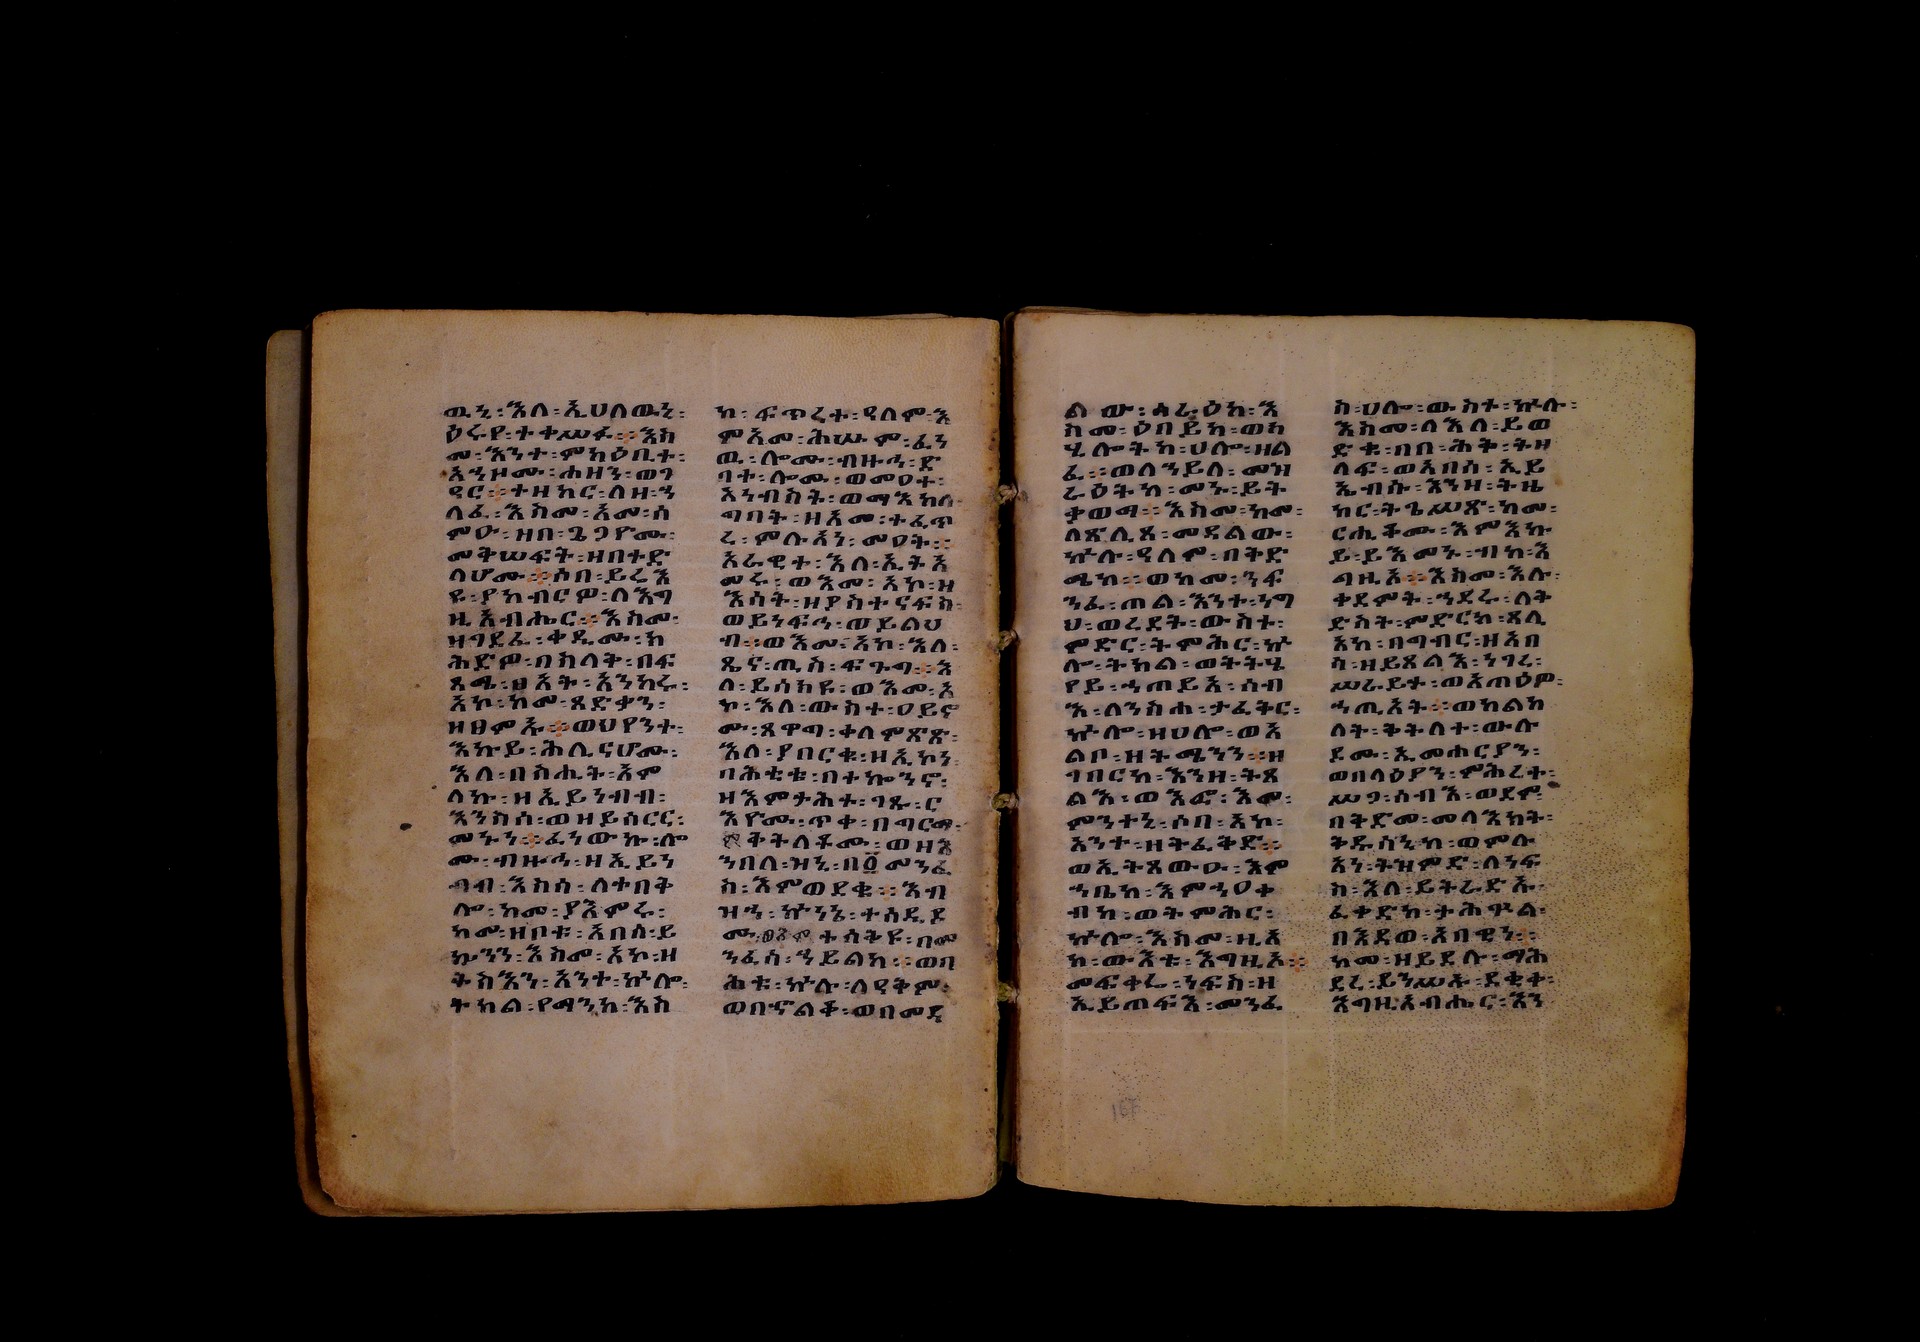 ዉኒ፡እለ፡ኢሀለዉኒ፡
ዕሩየ፡ተቀሠፉ። እስ
መ፡እንተ፡ምክዕቢተ፡
አኀዞሙ፡ሐዘን፡ወገ
ዳር። ተዘከሮ፡ለዘ፡ኀ
ለፈ፡እስመ፡አመ፡ሰ
ምዑ፡ዘበ፡ጌጋዮሙ፡
መቅሠፍት፡ዘበተድ
ላሆሙ። ሶበ፡ይረእ
ዩ፡ያከብርዎ፡ለእግ
ዚአብሔር። እስመ፡
ዘገደፈ፡ቀዲሙ፡ክ
ሕድዎ፡በስላቅ፡በፍ
ጻሜ፡ፀአት፡አንከሩ፡
አኮ፡ከመ፡ጻድቃን፡
ዘፀምኡ። ወህየንተ፡
እኩይ፡ሕሊናሆሙ፡
እለ፡በስሒት፡አም
ለኩ፡ዘኢይነብብ፡
እንስሰ፡ወዘይሰርር፡
መኑን። ፈነውኩ፡ሎ
ሙ፡ብዙኃ፡ዘኢይን
ብብ፡እስሰ፡ለተበቅ
ሎ፡ከመ፡ያእምሩ፡
ከመ፡ዘቦቱ፡አበሰ፡ይ
ኴንን፡እስመ፡አኮ፡ዘ
ትስእን፡እንተ፡ኵሎ፡
ትክል፡የማንከ፡እስ
ከ፡ፍጥረተ፡ዓለም፡እ
ምአመ፡ሕሡም፡ፈን
ዉ፡ሎሙ፡ብዙኃ፡ድ
ባተ፡ሎሙ፡ወመዐተ፡
አንብስት፡ወማእከለ
ግባት፡ዘአመ፡ተፈጥ
ረ፡ምሉአነ፡መዐት።
አራዊተ፡እለ፡ኢትአ
መሩ፡ወእመ፡አኮ፡ዘ
እሳት፡ዘያስተናፍስ፡
ወይነፍኅ፡ወይልህ
ብ። ወእመ፡አኮ፡እለ፡
ጼና፡ጢስ፡ፍጉግ። እ
ለ፡ይሰክዩ፡ወእመ፡አ
ኮ፡እለ፡ውስተ፡ዐይኖ
ሙ፡ጸዋግ፡ቀላምጽጽ፡
እለ፡ያበርቁ፡ዘኢኮነ፡
ባሕቲቱ፡በተኰንኖ፡
ዘእምታሕተ፡ገጹ፡ር
እዮሙ፡ጥቀ፡በግርማ፡
ቅትላቶሙ፡ወዘእ
ንበለ፡ዝኒ፡በ፩መንፈ
ስ፡እምወደቁ። እብ
ዝኀ፡ኵነኔ፡ተሰዲዶ
ሙ፡ተሰትዩ፡በመ
ንፈስ፡ኀይልከ። ወባ
ሕቱ፡ኵሉ፡ለዳቅም፡
ወበኆልቆ፡ወበመዳ
ል ው፡ሳራዕከ፡እ
ስመ፡ዕበይከ፡ወከ
ሂሎትከ፡ሀሎ፡ዘል
ፈ። ወለኀይለ፡መዝ
ራዕትከ፡መኑ፡ይት
ቃወማ። እስመ፡ከመ፡
ለጽሊጸ፡መዳልው፡
ኵሉ፡ዓለም፡በቅድ
ሜከ። ወከመ፡ነፍ
ንፈ፡ጠል፡እንተ፡ነግ
ህ፡ወረደት፡ውስተ፡
ምድር፡ትምሕር፡ኵ
ሎ፡ትክል፡ወትትሄ
የይ፡ኃጠይአ፡ሰብ
እ፡ለንስሐ፡ታፈቅር፡
ኵሎ፡ዘሀሎ፡ወአ
ልቦ፡ዘትሜንን። ዘ
ገበርከ፡እንዘ፡ትጸ
ልእ፡ወእፎ፡እመ፡
ምንተኒ፡ሶበ፡አኮ፡
አንተ፡ዘትፈቅድ።
ወኢትጸውዑ፡እም
ኀቤከ፡እምኀዐቀ
ብከ፡ወትምሕር፡
ኵሎ፡እስመ፡ዚአ
ከ፡ውእቱ፡እግዚአ።
መፍቀሬ፡ነፍስ፡ዘ
ኢይጠፍእ፡መንፈ
ስ፡ሀሎ፡ውስተ፡ኵሉ፡
እስመ፡ለእለ፡ይወ
ድቁ፡በበ፡ሕቅ፡ትዘ
ላፍ፡ወእበሰ፡ኢይ
ኤብሱ፡እንዘ፡ትዜ
ከር፡ትጌሠጽ፡ከመ፡
ርሒቶሙ፡እምእኩ
ይ፡ይእመኑ፡ብከ፡እ
ግዚአ። እስመ፡እሉ፡
ቀደምት፡ኀደሩ፡ለት
ድስት፡ምድርከ፡ጸሊ
አከ፡በግብር፡ዘአበ
ሳ፡ዘይጸልእ፡ነገረ፡
ሠራይት፡ወአጠዕም፡
ኀጢአት። ወከልከ
ለት፡ቅትለተ፡ውሉ
ደሙ፡ኢመሐርያን፡
ወበላዕያን፡ምሕረተ፡
ሥጋ፡ሰብእ፡ወደም፡
በቅድመ፡መላእክት፡
ቅዱሳኒከ፡ወምሉ
አን፡ትዝምድ፡ለነፍ
ስ፡እለ፡ይትራድኡ፡
ፈቀድከ፡ታሕጕል፡
በእደወ፡አበዊነ።
ከመ፡ዘይደሉ፡ማሕ
ደረ፡ይንሥኡ፡ደቂቀ፡
እግዚአብሔር፡እን